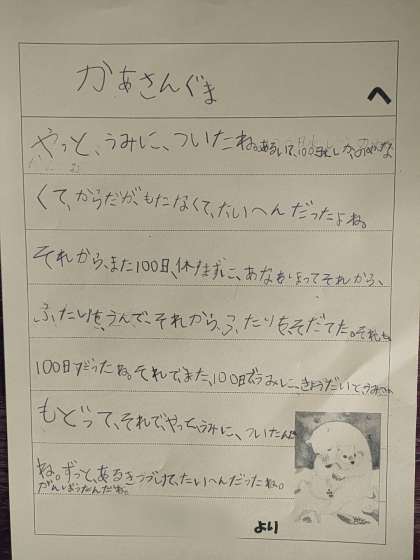 かあさんぐま
へ
やっと、うみに、ついたね。あるいて、100日しか、
くて、からだが、もたなくて、たいへんだったよね。
それから、また100日、休まずに、あなをほってそれから、
ふたりを、うんで、それから、ふたりを、そだてた。それも
100日だったね。それで、また、100日でうみに、きょうだいと、
もどって、それで、やっと、うみに、ついたんだ
ね。ずっと、あるきつづけて、たいへんだったね。
がんばったんだね。
より